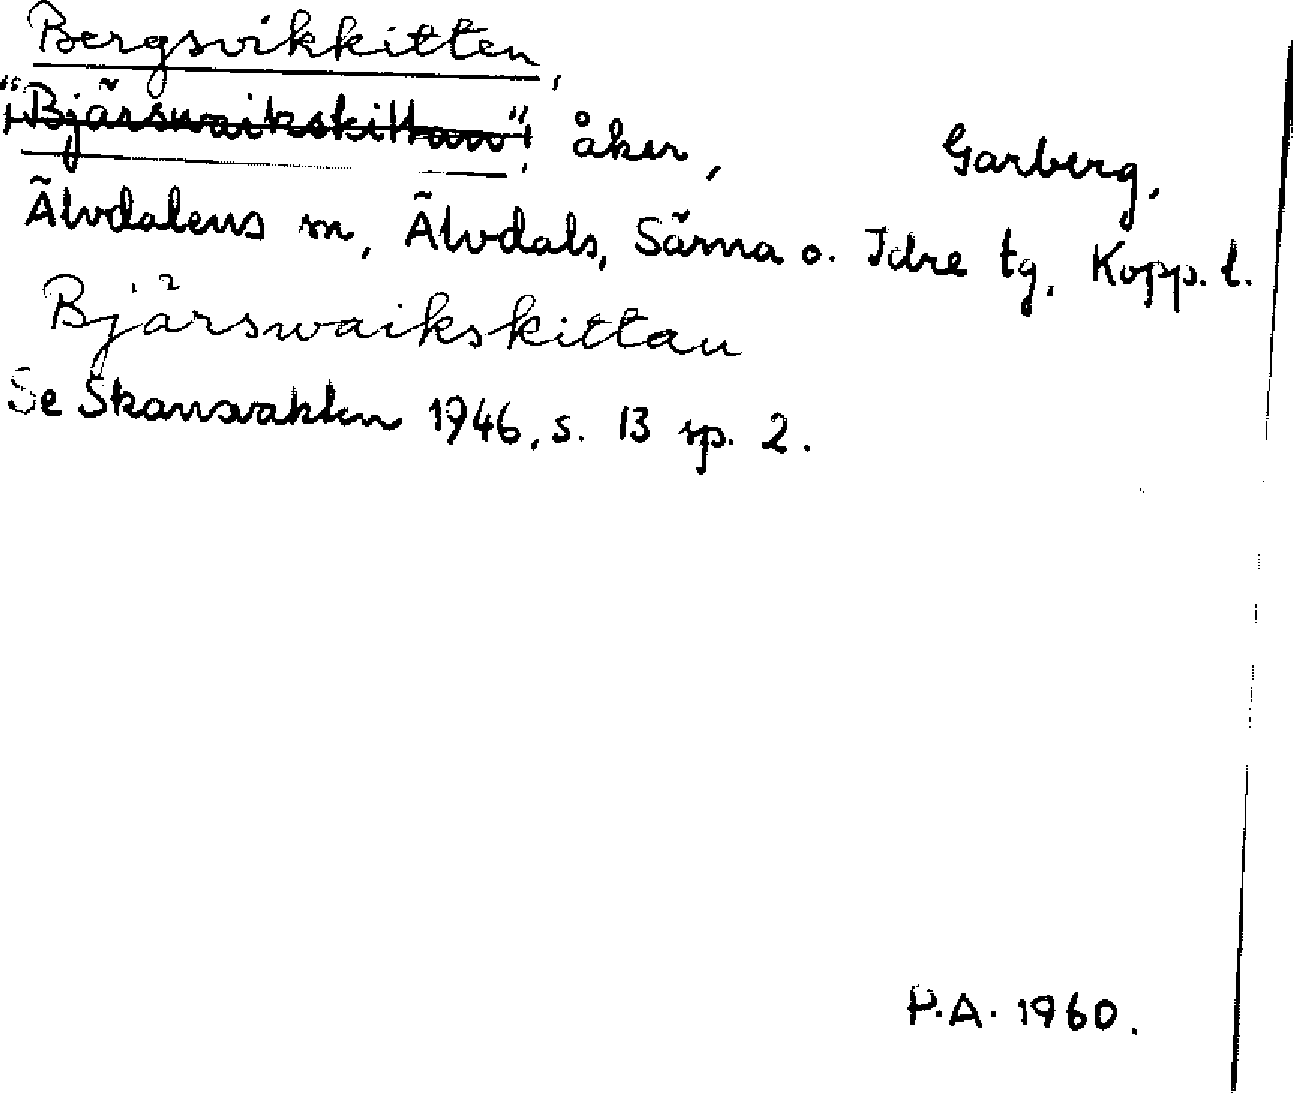 Bergsvikkitten,
"Bjärswaikskittan", åker, Garberg,
Älvdalens m, Älvdals, Särna o. Idre tg, Kopp. l.
Bjärswaikskittan
Se Skansvakten 1946, s. 13 sp. 2.
P.A. 1960.